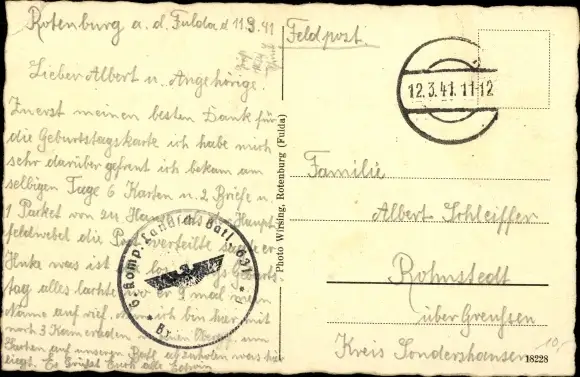 Rotenburg a. d. Fulda d 11.3.41
Lieber Albert u. Angehörige.
Zuerst meinen besten Dank für
die Geburtstagskarte ich habe mich
sehr darüber gefreut ich bekam am
selbigen Tage 6 Karten u. 2 Briefe u.
1 Packet von zu Haupt
feldwebel die Post verteilte sagte er
was ist Geburts
tag alles lachte er 9 mal mein
Name auf rief. ich bin hier mit
noch 3 Kameraden um
Karten auf unseren abzuholen was hier
liegt. Es Grüßt Euch alle
Feldpost.
12.3.41.11-12
Familie
Albert Schleiffer
Rohnstedt
über Greußen
Kreis Sondershausen
18228
10,-
Photo Wirsing, Rotenburg (Fulda)
6. Komp. Landesch. Batl. 631